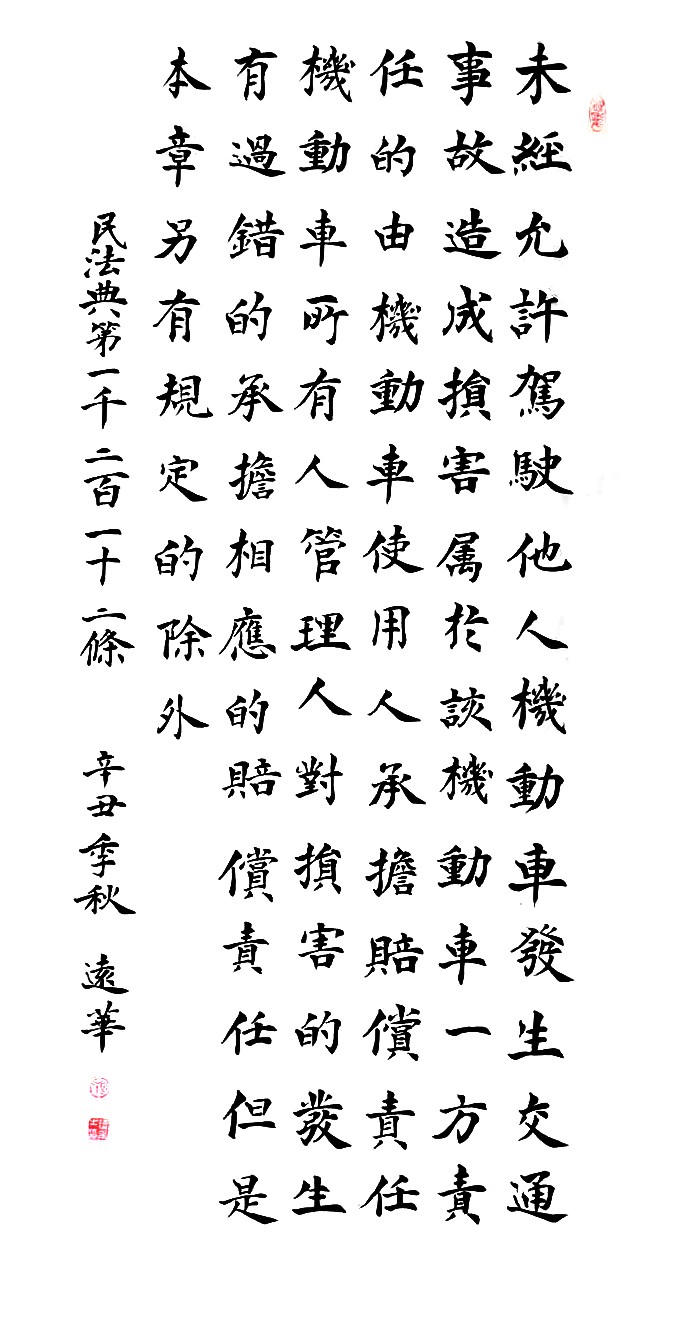 未經允許駕駛他人機動車發生交通
事故造成損害属於該機動車一方責
任的由機動車使用人承擔賠償責任
機動車所有人管理人對損害的發生
有過錯的承擔相應的賠償責任但是
本章另有規定的除外
民法典第一千二百一十二條 辛丑季秋 遠華